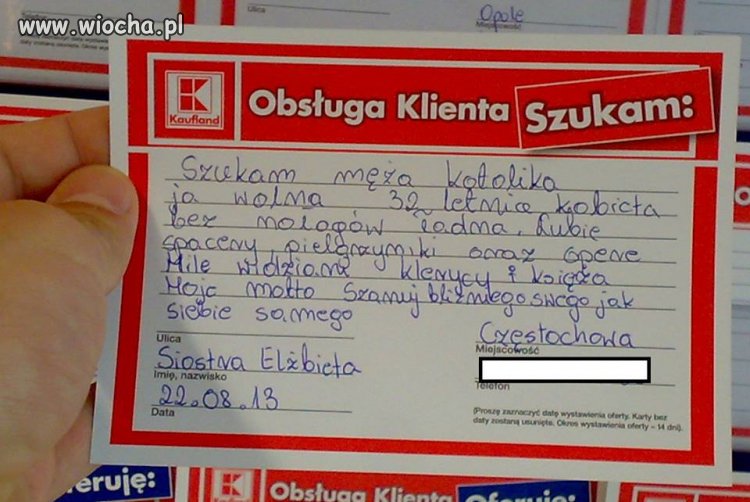 www.wiocha.pl
Ulica
Opole
Miejscowość
Kaufland
Obsługa Klienta Szukam:
Szukam męża katolika
ja wolna 32 letnica kobieta
bez nałogów ładna. Lubię
spacery, pielgrzymki oraz operę
Mile widziane klerycy i księża
Moje motto Szanuj bliźniego swego jak
siebie samego
Ulica
Częstochowa
Miejscowość
Siostra Elżbieta
Imię, nazwisko
Telefon
22.08.13
Data
(Proszę zaznaczyć datę wystawienia oferty. Karty bez
daty zostaną usunięte. Okres wystawienia oferty – 14 dni).
eruję:
Obsługa Klienta
Oferuję: